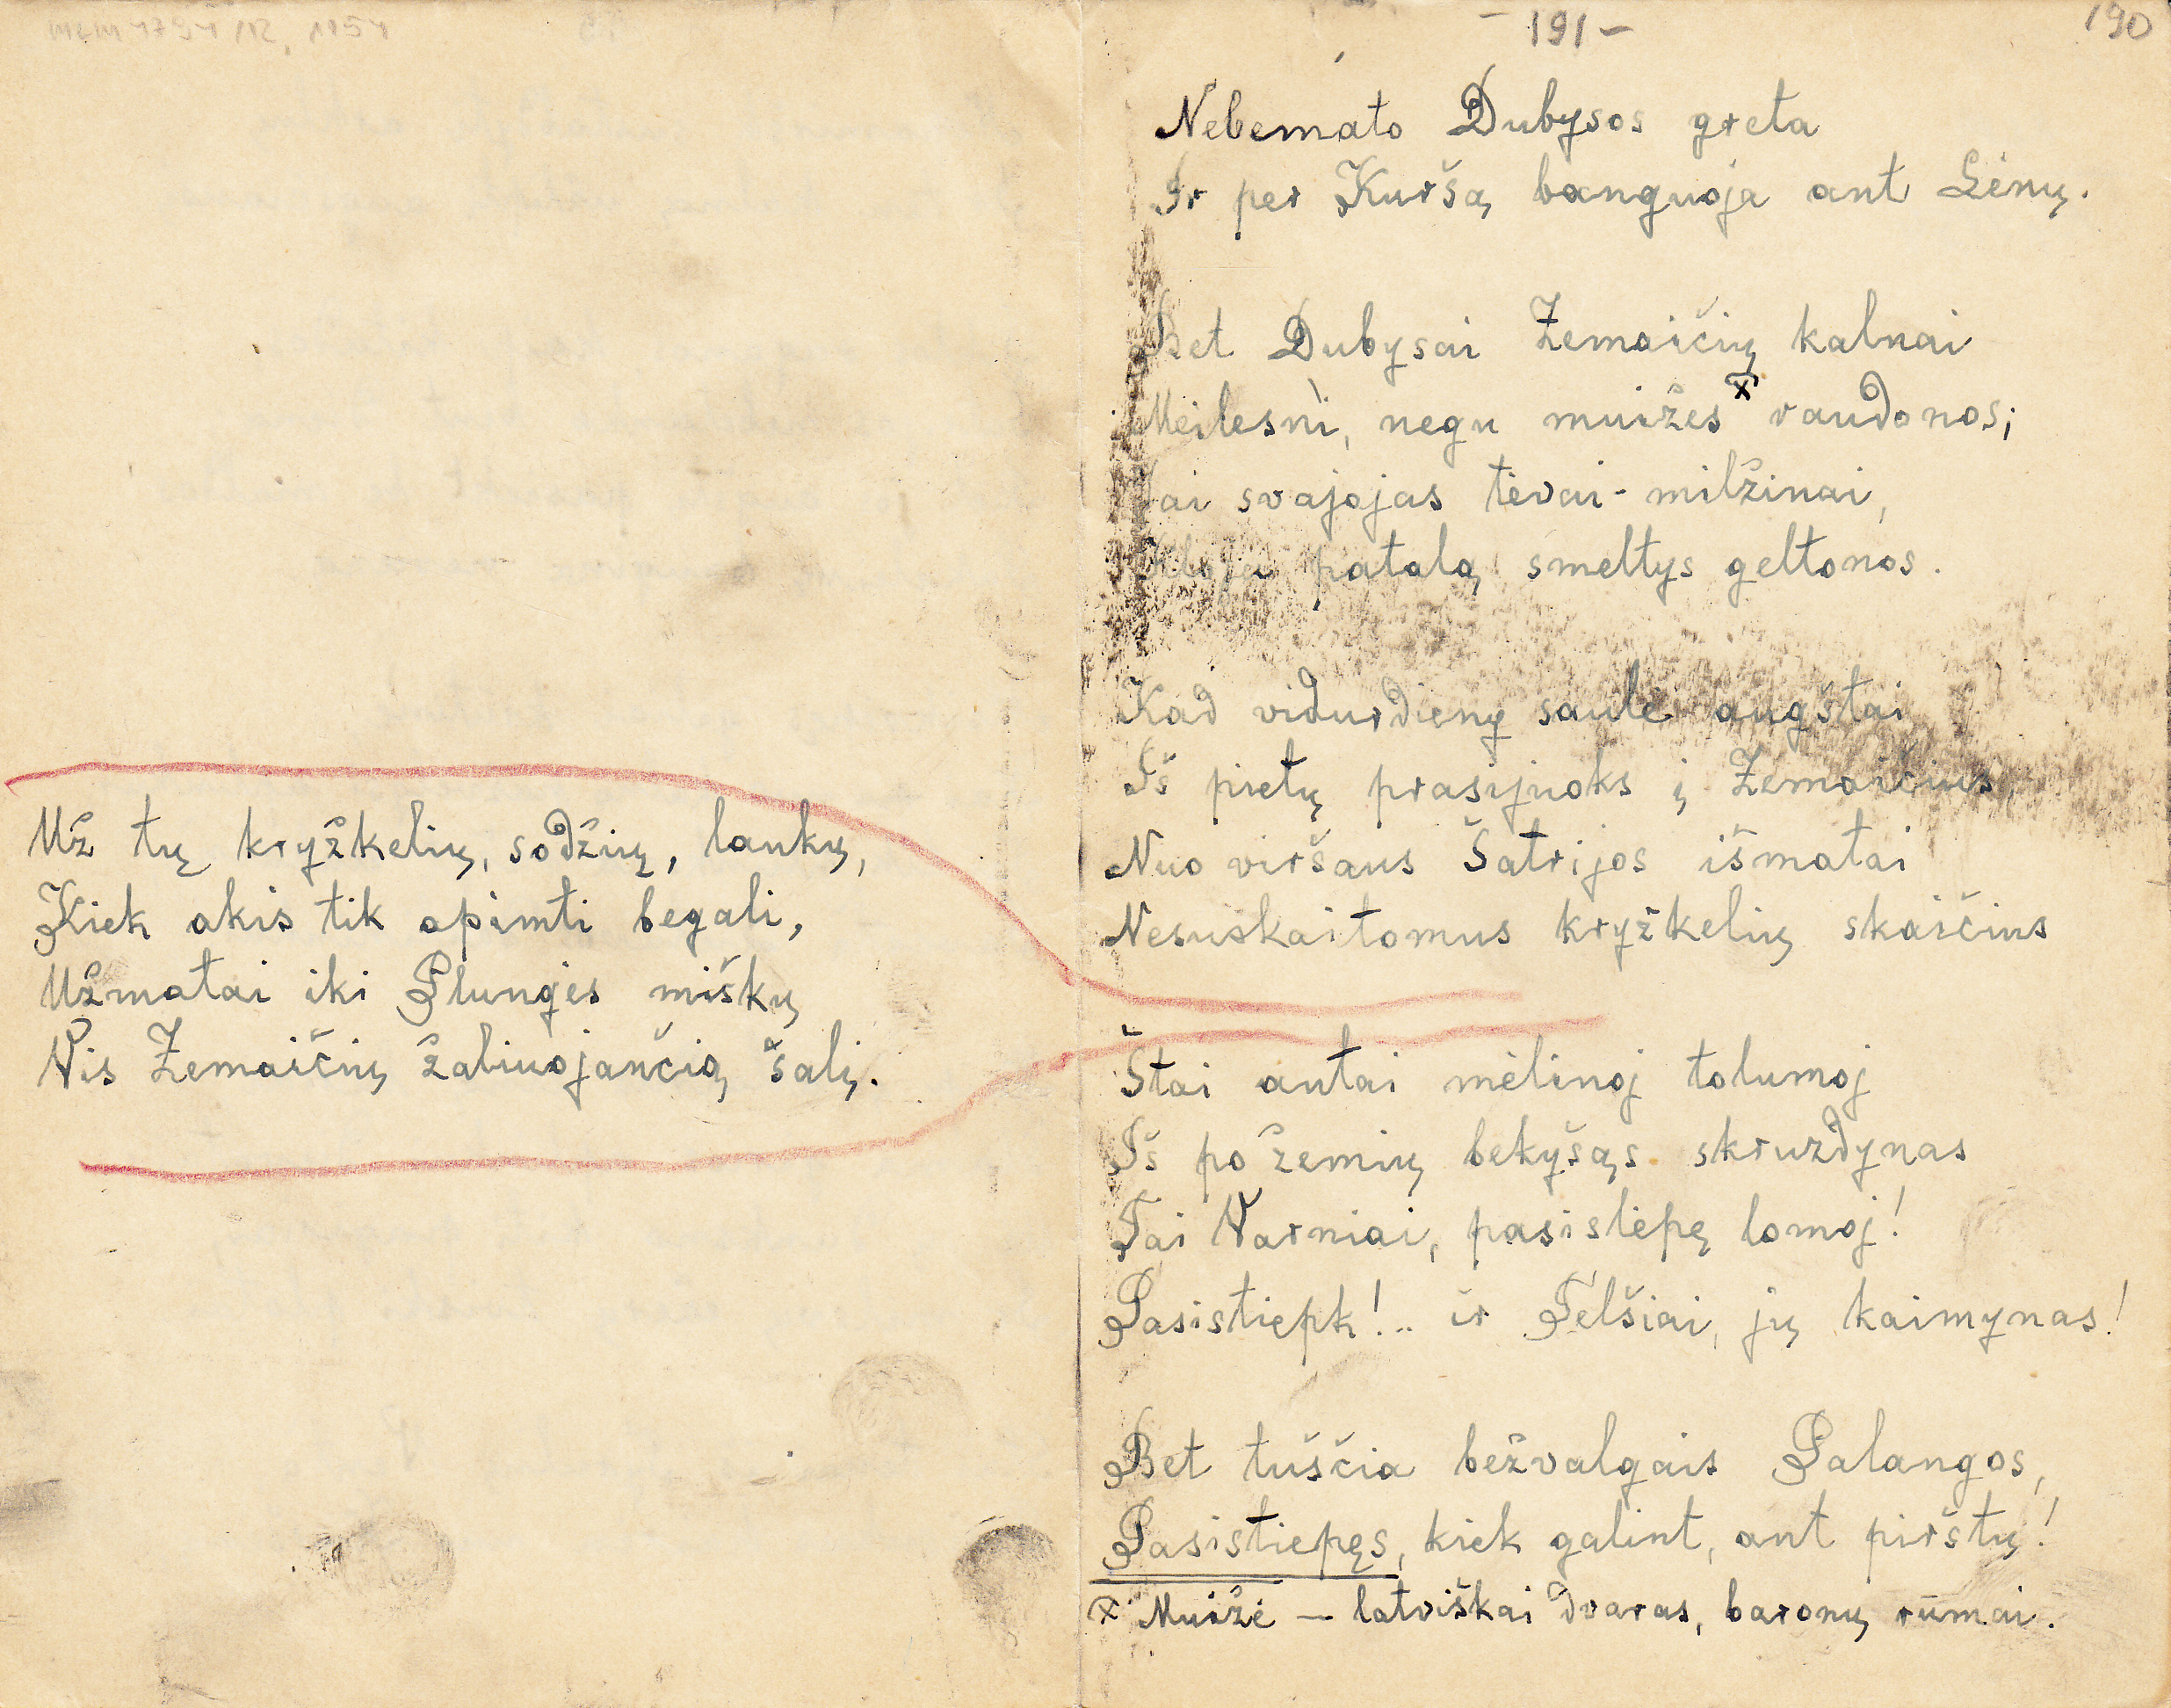 Už tų kryžkelių, sodžių, laukų,
Kiek akis tik apimti begali,
Užmatai iki Plungės miškų
Vis Žemaičių žaliuojančią šalį.
- 191 -
190
Nebemato Dubysos greta
Ir per Kuršą banguoja ant Lėnų.
Bet Dubysai Žemaičių kalnai
Meilesni, negu muižės x vaudonos;
Jai svajojas tėvai-milžinai,
Kloja patalą smeltys geltonos.
Kad vidurdienų saulė augštai
Iš pietų prasijuoks į Žemaičius,
Nuo viršaus Šatrijos išmatai
Nesuskaitomus kryžkelių skaičius
Štai antai mėlinoj tolumoj
Iš po žemių bekyšąs skruzdynas
Tai Varniai, pasislėpę lomoj!
Pasistiepk!.. ir Telšiai, jų kaimynas!
Bet tuščia bežvalgais Palangos,
Pasistiepęs, kiek galint, ant pirštų!
x Muižė — latviškai dvaras, baronų rūmai.